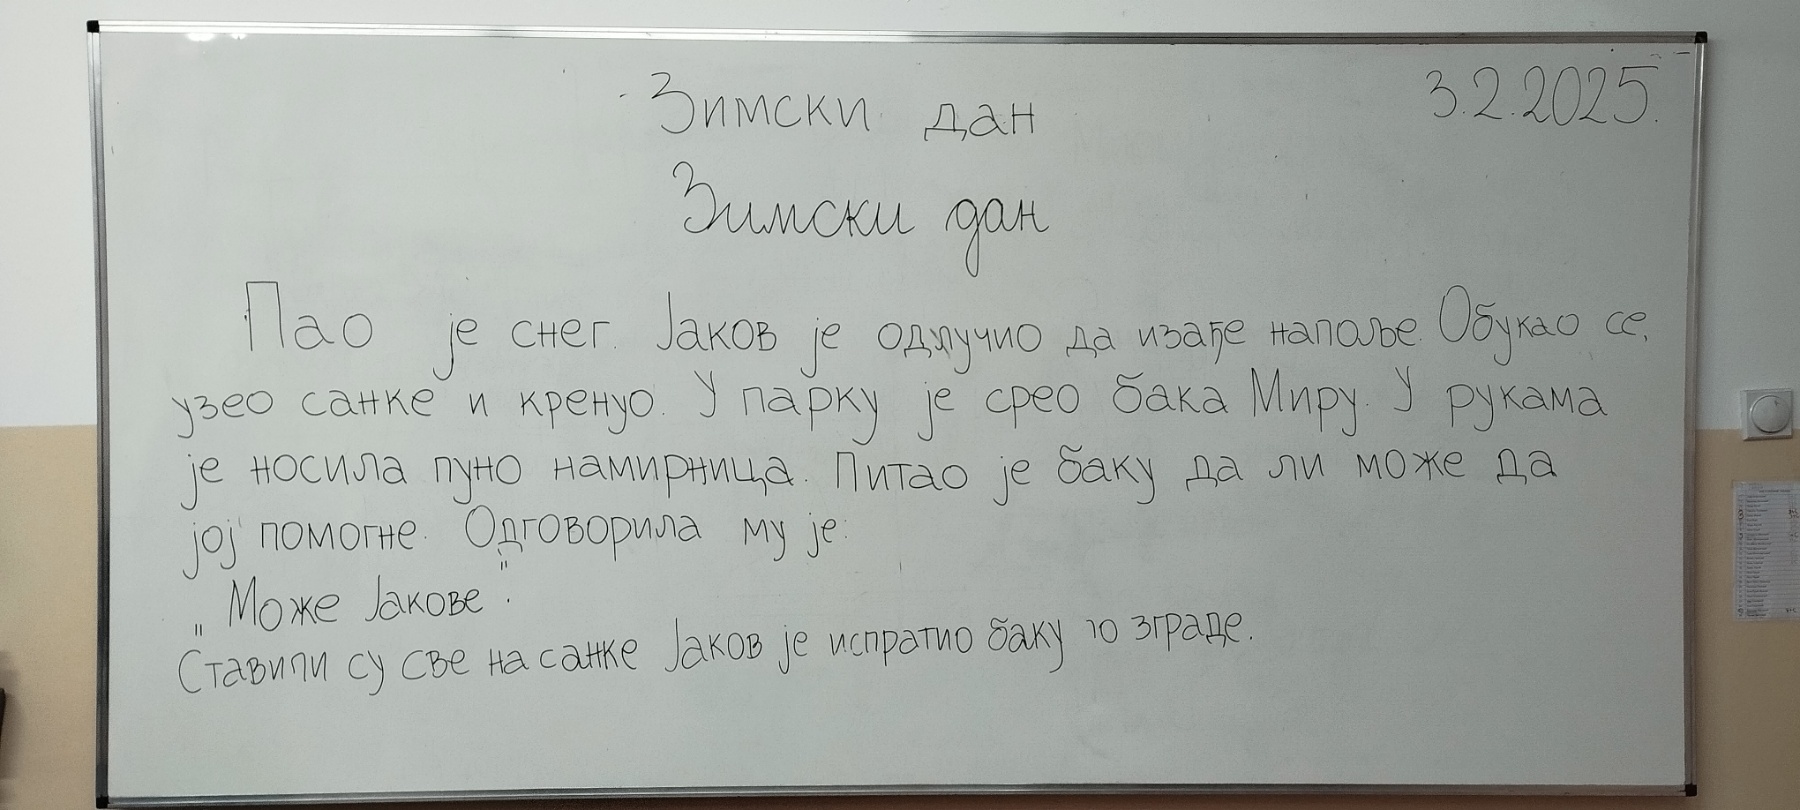 Зимски дан
3.2.2025.
Зимски дан
Пао је снег. Јаков је одлучио да изађе напоље. Обукао се,
узео санке и кренуо. У парку је срео бака Миру. У рукама
је носила пуно намирница. Питао је баку да ли може да
јој помогне. Одговорила му је:
„Може Јакове".
Ставили су све на санке Јаков је испратио баку до зграде.